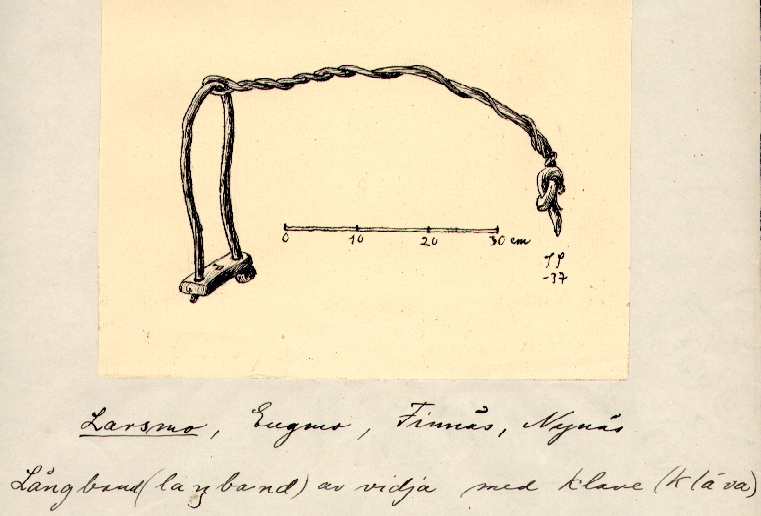 0 10 20 30 cm
-37
Larsmo, Eugmo, Finnäs, Nynäs
Långband (laŋband) av vidja med klave (klåva)